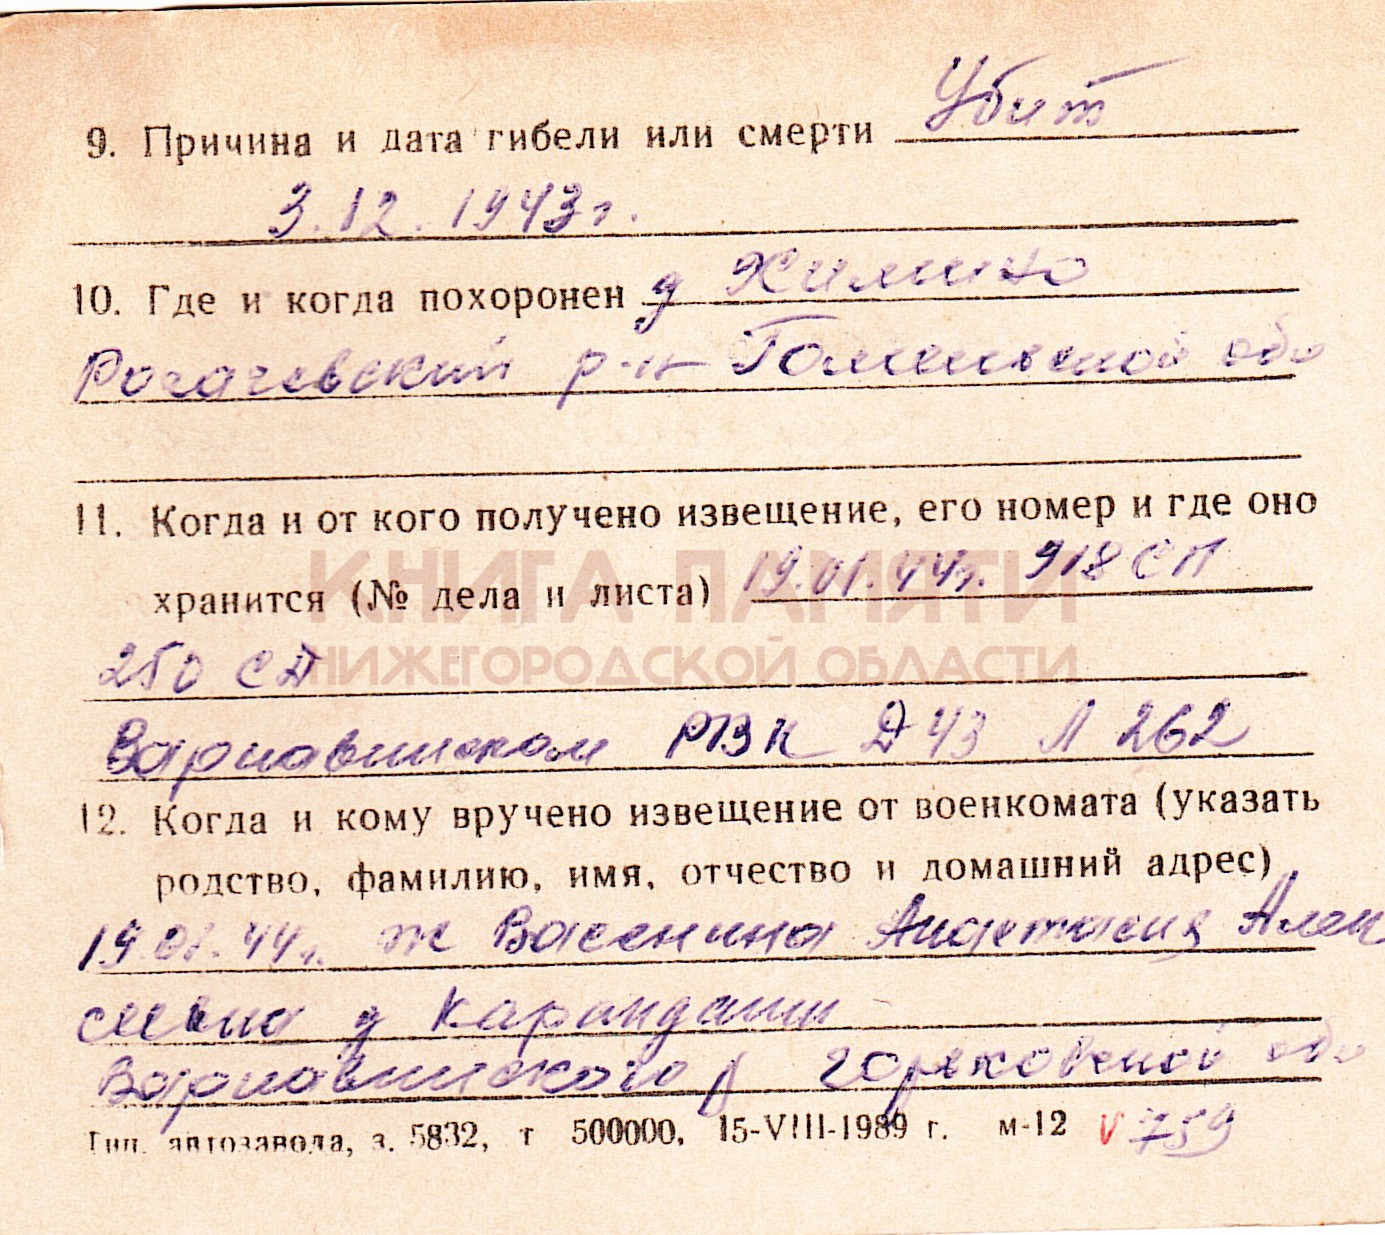 9. Причина и дата гибели или смерти Убит
3.12.1943г.
10. Где и когда похоронен д Химино
Рогачевский р-н Гомельской обл
11. Когда и от кого получено извещение, его номер и где оно
хранится (№ дела и листа) 19.01.44г. 918 СП
КНИГА ПАМЯТИ
НИЖЕГОРОДСКОЙ ОБЛАСТИ
250 СД
Варнавинском РВК Д 43 Л 262
12. Когда и кому вручено извещение от военкомата (указать
родство, фамилию, имя, отчество и домашний адрес)
19.01.44г. ж Васенина Анастасия Алек
сеевна д Карандаши
Варнавинского р Горьковской обл
Тип. автозавода, з. 5832, т 500000, 15-VIII-1989 г. м-12 V 759